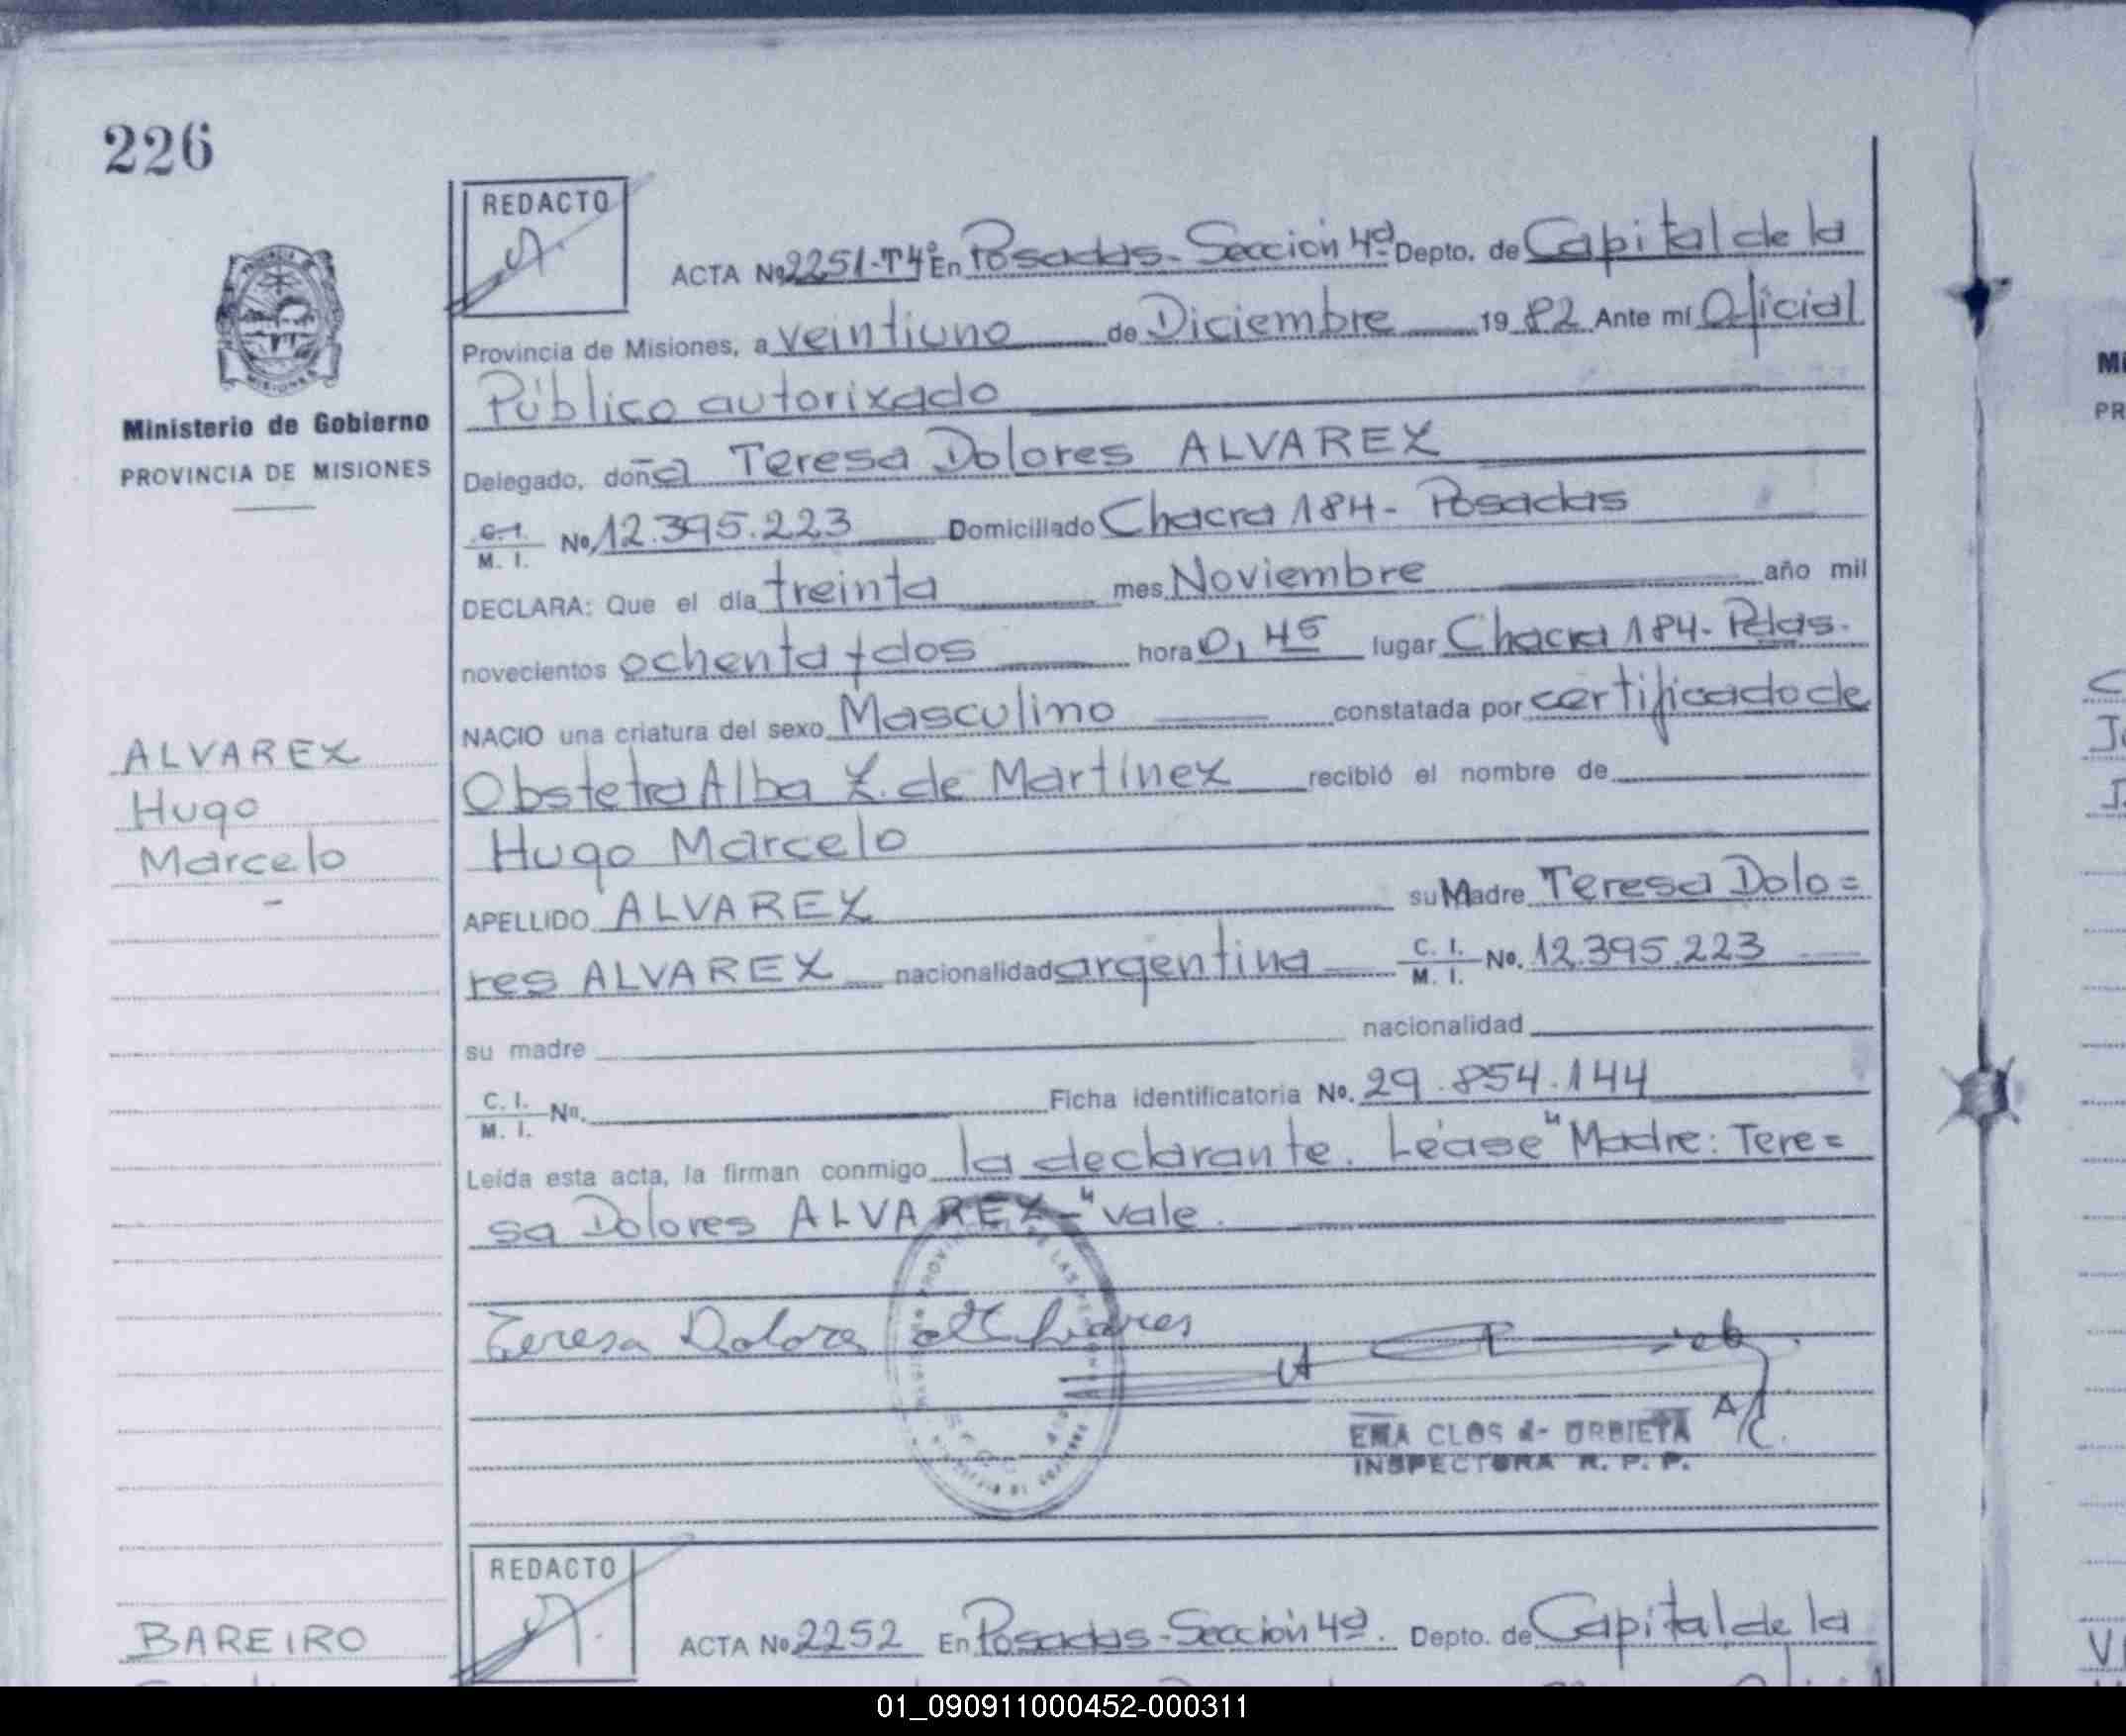 226
REDACTO
ACTA Nº 2251-Tº4º En Posadas - Sección 4ª Depto. de Capital de la
Provincia de Misiones, a veintiuno de Diciembre 19 82 Ante mí Oficial
Público autorizado
Ministerio de Gobierno
PROVINCIA DE MISIONES
Delegado, doña Teresa Dolores ALVAREZ
C. I. / M. I. Nº 12.395.223 Domiciliado Chacra 184 - Posadas
DECLARA: Que el día treinta mes Noviembre año mil
novecientos ochenta y dos hora 0,45 lugar Chacra 184 - Pdas.
NACIO una criatura del sexo Masculino constatada por certificado de
ALVAREZ
Hugo
Marcelo
Obstetra Alba Z. de Martínez recibió el nombre de
Hugo Marcelo
APELLIDO ALVAREZ su Madre Teresa Dolo=
res ALVAREZ nacionalidad argentina C. I. / M. I. Nº. 12.395.223
su madre nacionalidad
C. I. / M. I. Nº. Ficha identificatoria Nº. 29.854.144
Leída esta acta, la firman conmigo la declarante. Léase "Madre: Tere=
sa Dolores ALVAREZ-" vale.
Teresa Dolores
CLOS ORBIETA
INSPECTORA R. P. P.
REDACTO
BAREIRO
ACTA Nº 2252 En Posadas - Sección 4ª. Depto. de Capital de la
01_090911000452-000311